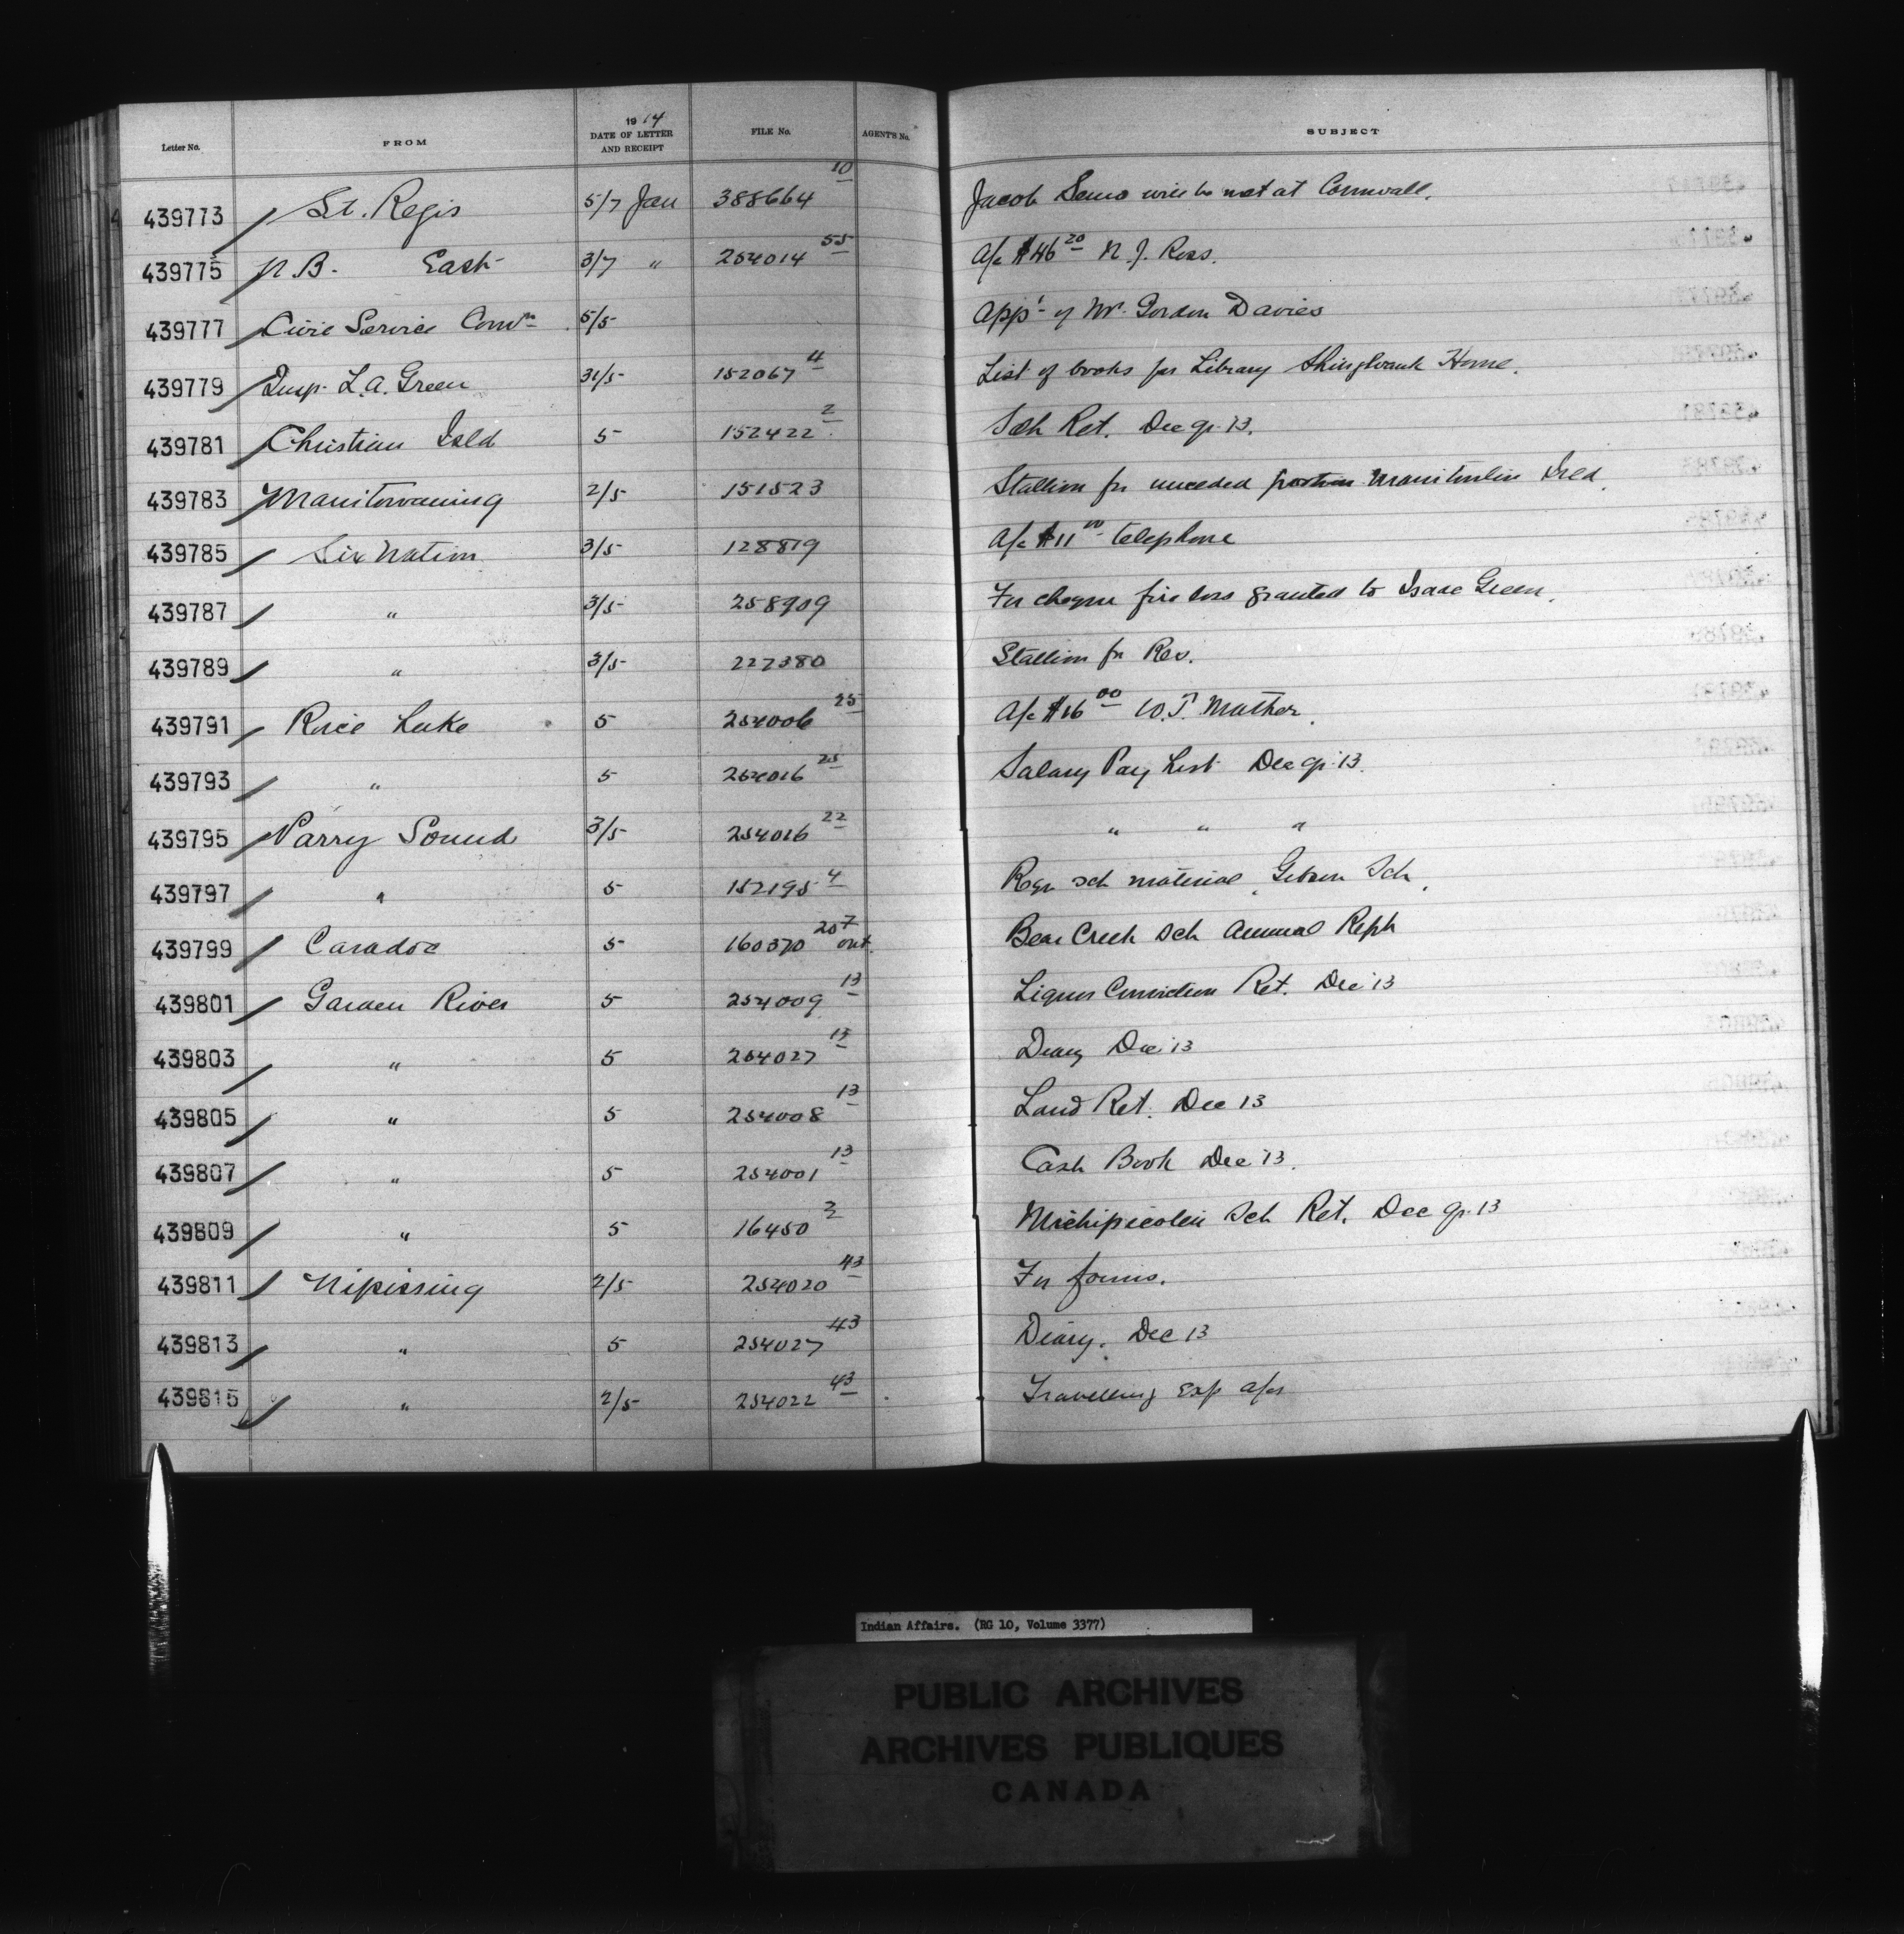 Letter No. FROM 1914 DATE OF LETTER AND RECEIPT FILE No. AGENT'S No. SUBJECT
439773 St. Regis 5/7 Jan 388664 10 Jacob will be met at Cornwall.
439775 N.B. East 3/7 " 254014 55 A/c $46 20 N. J. Ross.
439777 Civil Service Comn 5/5 App't of Mr. Gordon Davies
439779 Insp. L.A. Green 31/5 152067 4 List of books for Library Shingwauk Home.
439781 Christian Isld 5 152422 2 Sch Ret. Dec qr. 13.
439783 Manitowaning 2/5 151523 Stallion for unceded portion Manitoulin Isld.
439785 Six Nation 3/5 128819 A/c $11 00 telephone
439787 " 3/5 258909 For cheque fire loss granted to Isaac Green.
439789 " 3/5 227380 Stallion for Res.
439791 Rice Lake 5 254006 25 A/c $16 00 W.J. Mather.
439793 " 5 254016 25 Salary Pay List Dec qr. 13.
439795 Parry Sound 3/5 254016 22 " " "
439797 " 5 152195 4 Reqn sch material, Gibson Sch.
439799 Caradoc 5 160370 207 out Bear Creek Sch Annual Rept
439801 Garden River 5 254009 13 Liquor Conviction Ret. Dec 13
439803 " 5 254027 13 Diary Dec 13
439805 " 5 254008 13 Land Ret. Dec 13
439807 " 5 254001 13 Cash Book Dec 13.
439809 " 5 16450 2 Michipicoten Sch Ret. Dec qr. 13
439811 Nipissing 2/5 254020 43 For forms.
439813 " 5 254027 43 Diary. Dec 13
439815 " 2/5 254022 43 Travelling Exp a/cs
Indian Affairs. (RG 10, Volume 3377)
PUBLIC ARCHIVES
ARCHIVES PUBLIQUES
CANADA